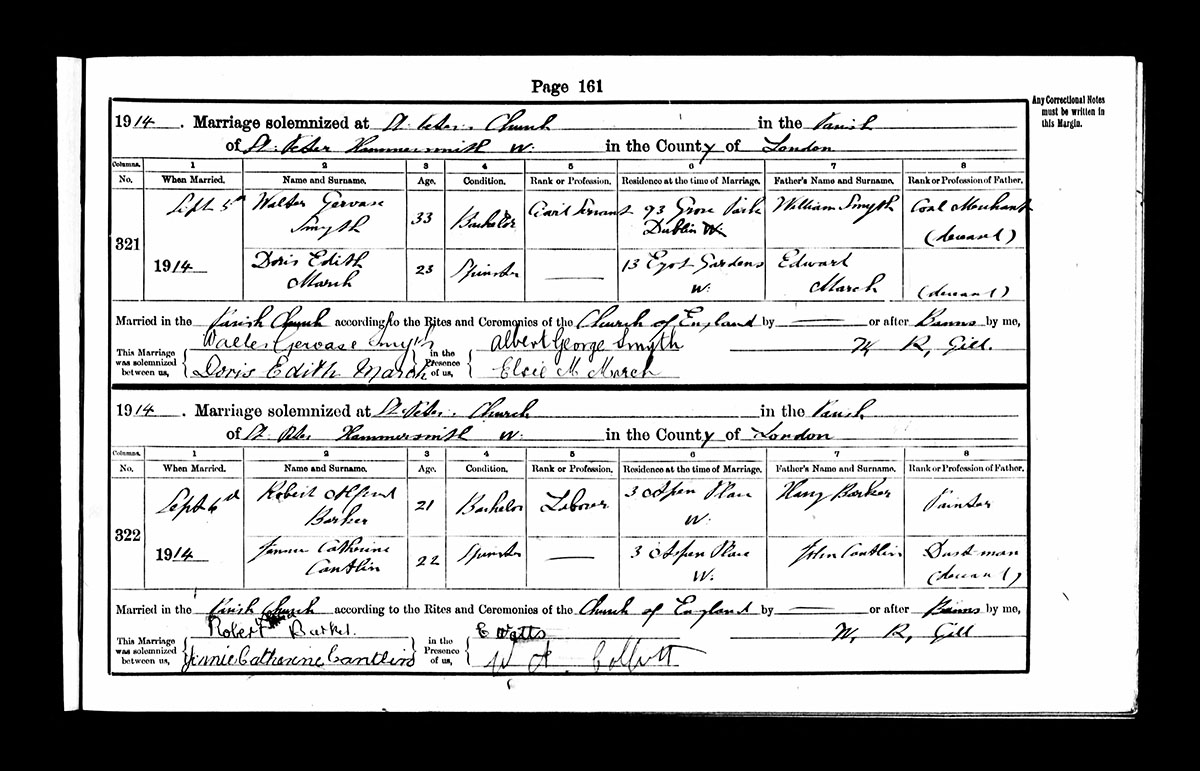 Page 161
Any Correctional Notes
must be written in
this Margin.
1914. Marriage solemnized at St. Peter's Church in the Parish
of St. Peter Hammersmith W. in the County of London
Columns. 1 2 3 4 5 6 7 8
No. When Married. Name and Surname. Age. Condition. Rank or Profession. Residence at the time of Marriage. Father's Name and Surname. Rank or Profession of Father.
321 Sept 5th Walter Gervase Smyth 33 Bachelor Civil Servant 93 Grove Park Dublin W. William Smyth Coal Merchant (deceased)
1914 Doris Edith March 23 Spinster — 13 Eyot Gardens W. Edward March (deceased)
Married in the Parish Church according to the Rites and Ceremonies of the Church of England by — or after Banns by me,
Walter Gervase Smyth Albert George Smyth W. R. Gill.
This Marriage was solemnized between us, Doris Edith March in the Presence of us, Elsie M March
1914. Marriage solemnized at St. Peter's Church in the Parish
of St. Peter Hammersmith W. in the County of London
Columns. 1 2 3 4 5 6 7 8
No. When Married. Name and Surname. Age. Condition. Rank or Profession. Residence at the time of Marriage. Father's Name and Surname. Rank or Profession of Father.
322 Sept 6th Robert Alfred Barker 21 Bachelor Labourer 3 Aspen Place W. Harry Barker Painter
1914 Jennie Catherine Cantlin 22 Spinster — 3 Aspen Place W. John Cantlin Dust man (deceased)
Married in the Parish Church according to the Rites and Ceremonies of the Church of England by — or after Banns by me,
Robert Barker E Watts W. R. Gill
This Marriage was solemnized between us, Jennie Catherine Cantlin in the Presence of us, W A